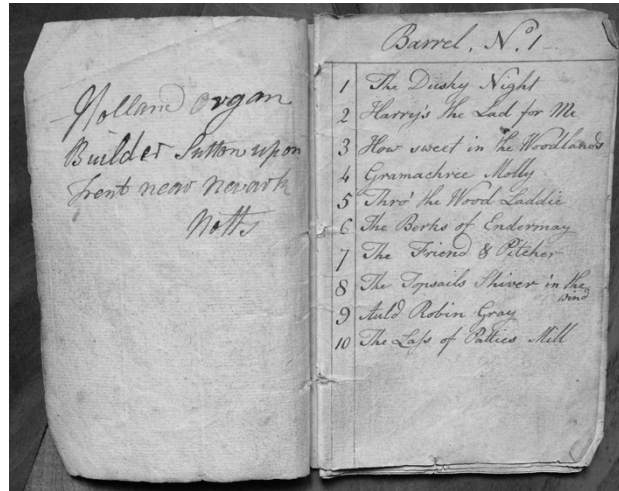 Holland Organ
Builder Sutton upon
Trent near Newark
Notts
Barrel. No. 1
1 The Dusky Night
2 Harry's the Lad for Me
3 How sweet in the Woodlands
4 Gramachree Molly
5 Thro' the Wood Laddie
6 The Berks of Endermay
7 The Friend & Pitcher
8 The Topsails Shiver in the
wind
9 Auld Robin Gray
10 The Laſs of Patties Mill